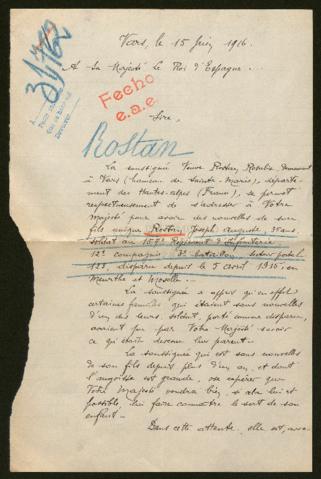 Vars, le 15 Juin 1916.
A Sa Majesté le Roi d'Espagne.
31762
Fecho
e.a.e.
Sire,
Rostan
La soussignée Veuve Rostan, Rosalie
à Vars (hameau de Sainte-Marie), départe-
ment des Hautes-Alpes (France), se permet
respectueusement de s'adresser à Votre
Majesté pour avoir des nouvelles de son
fils unique Rostan, Joseph Auguste, 35 ans,
soldat au 157e Régiment d'Infanterie
12e compagnie, 3e bataillon, secteur postal
123, disparu depuis le 5 avril 1915, en
Meurthe et Moselle.
La soussignée a appris qu'en effet
certaines familles qui étaient sans nouvelles
d'un des leurs, soldat, porté comme disparu,
avaient pu par Votre Majesté savoir
ce qu'était devenu leur parent.
La soussignée qui est sans nouvelles
de son fils depuis plus d'un an, et dont
l'angoisse est grande, ose espérer que
Votre Majesté voudra bien, si cela lui est
possible, lui faire connaître le sort de son
enfant.
Dans cette attente, elle est, avec